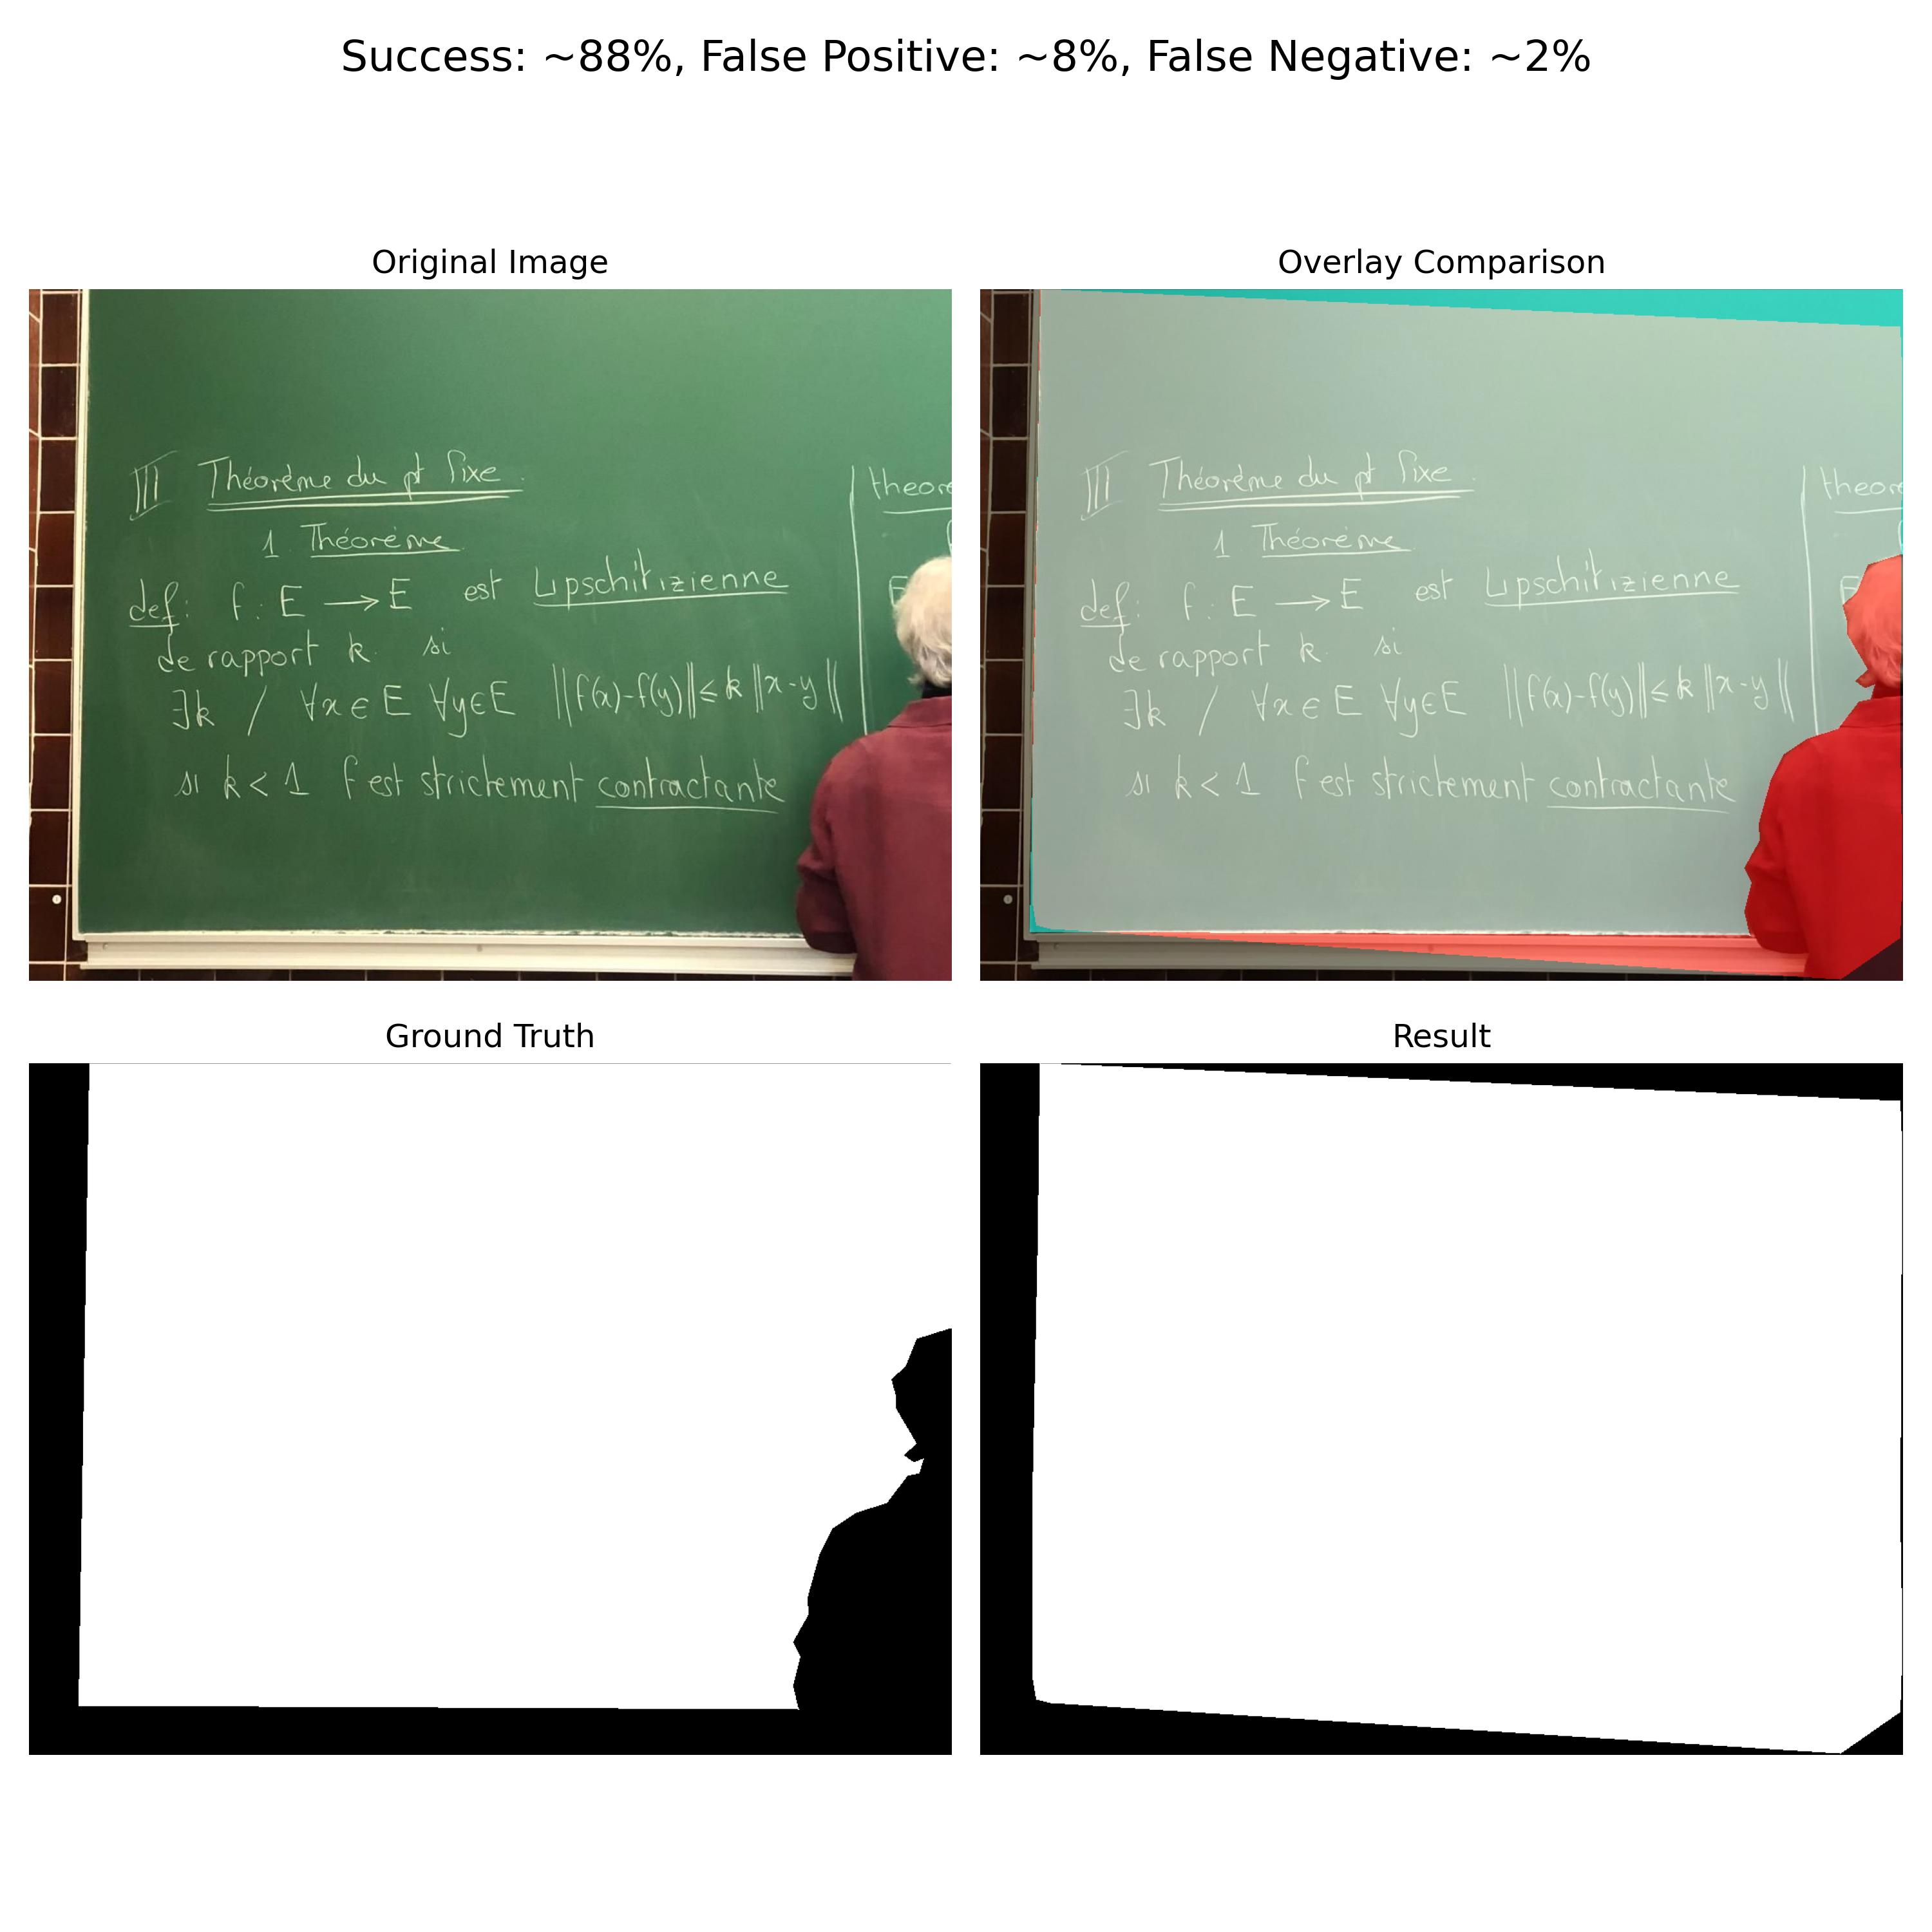 Success: ~88%, False Positive: ~8%, False Negative: ~2%
Original Image
III Théorème du pt fixe.
1 Théorème
def: f: E → E est Lipschitizienne
de rapport k si
∃k / ∀x ∈ E ∀y ∈ E ||f(x)-f(y)|| ≤ k ||x-y||
si k < 1 f est strictement contractante
theore
E
Overlay Comparison
III Théorème du pt fixe.
1 Théorème
def: f: E → E est Lipschitizienne
de rapport k si
∃k / ∀x ∈ E ∀y ∈ E ||f(x)-f(y)|| ≤ k ||x-y||
si k < 1 f est strictement contractante
theore
E
Ground Truth
Result